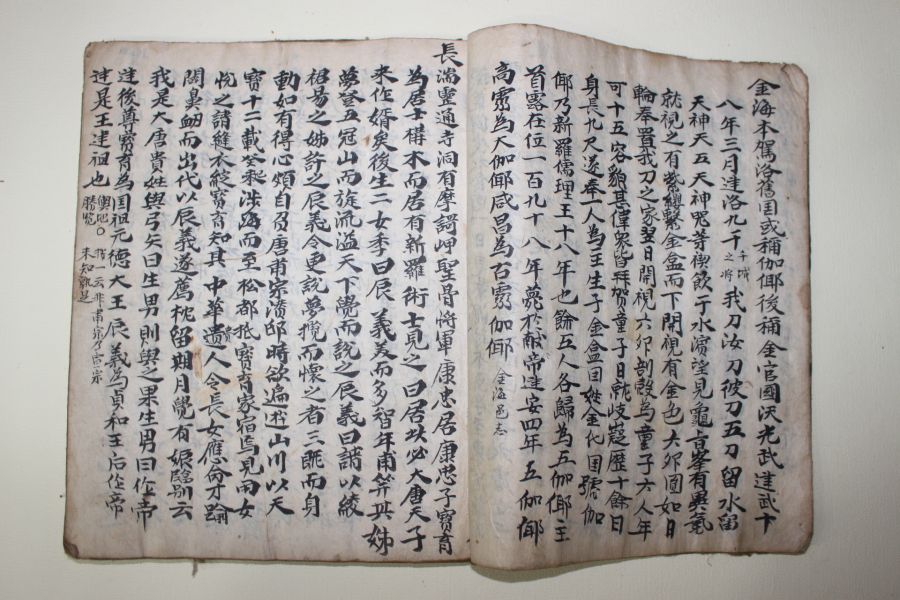 金海本駕洛舊国或稱伽倻後稱金官國漢光武建武十
八年三月逹洛九千千城之將我刀汝刀彼刀五刀留水留
天神天五天神鬼等禊飲于水濱望見龜旨峯有異氣
就視之有紫纓繫金盒而下開視有金色六卵圓如日
輪奉置我刀之家翌日開視六卵剖殼為童子六人年
可十五容貌甚偉衆皆拜賀童子日就岐嶷歷十餘日
身長九尺遂奉一人為王生于金盒因姓金化国號伽
倻乃新羅儒理王十八年也餘五人各歸為五伽倻主
首露在位一百九十八年薨於献帝建安四年五伽倻
高靈為大伽倻咸昌為古寧伽倻金海邑志
長湍靈通寺洞有摩訶岬聖骨将軍康忠居康忠子寶育
為居士構木而居有新羅術士見之曰居此必大唐天子
来作婿矣後生二女季曰辰義美而多智年甫笄其姊
夢登五冠山而旋流溢天下覺而說之辰義曰請以綾
裙易之姊許之辰義令更說夢攬而懷之者三既而身
動如有得心頗自負唐肅宗潜邸時欲遍遊山川以天
寶十二載癸巳渉海而至松都抵寶育家宿焉見両女
悅之請縫衣綻寶育知其中華遺人令長女應命才踰
閾鼻衄而出代以辰義遂薦枕留期月覺有娠臨别云
我是大唐貴姓與弓矢曰生男則與之果生男曰作帝
建後尊寶育為国祖元德大王辰義為貞和王后作帝
建是王建祖也輿地勝覧〇一云非肅宗乃宣宗未知孰是